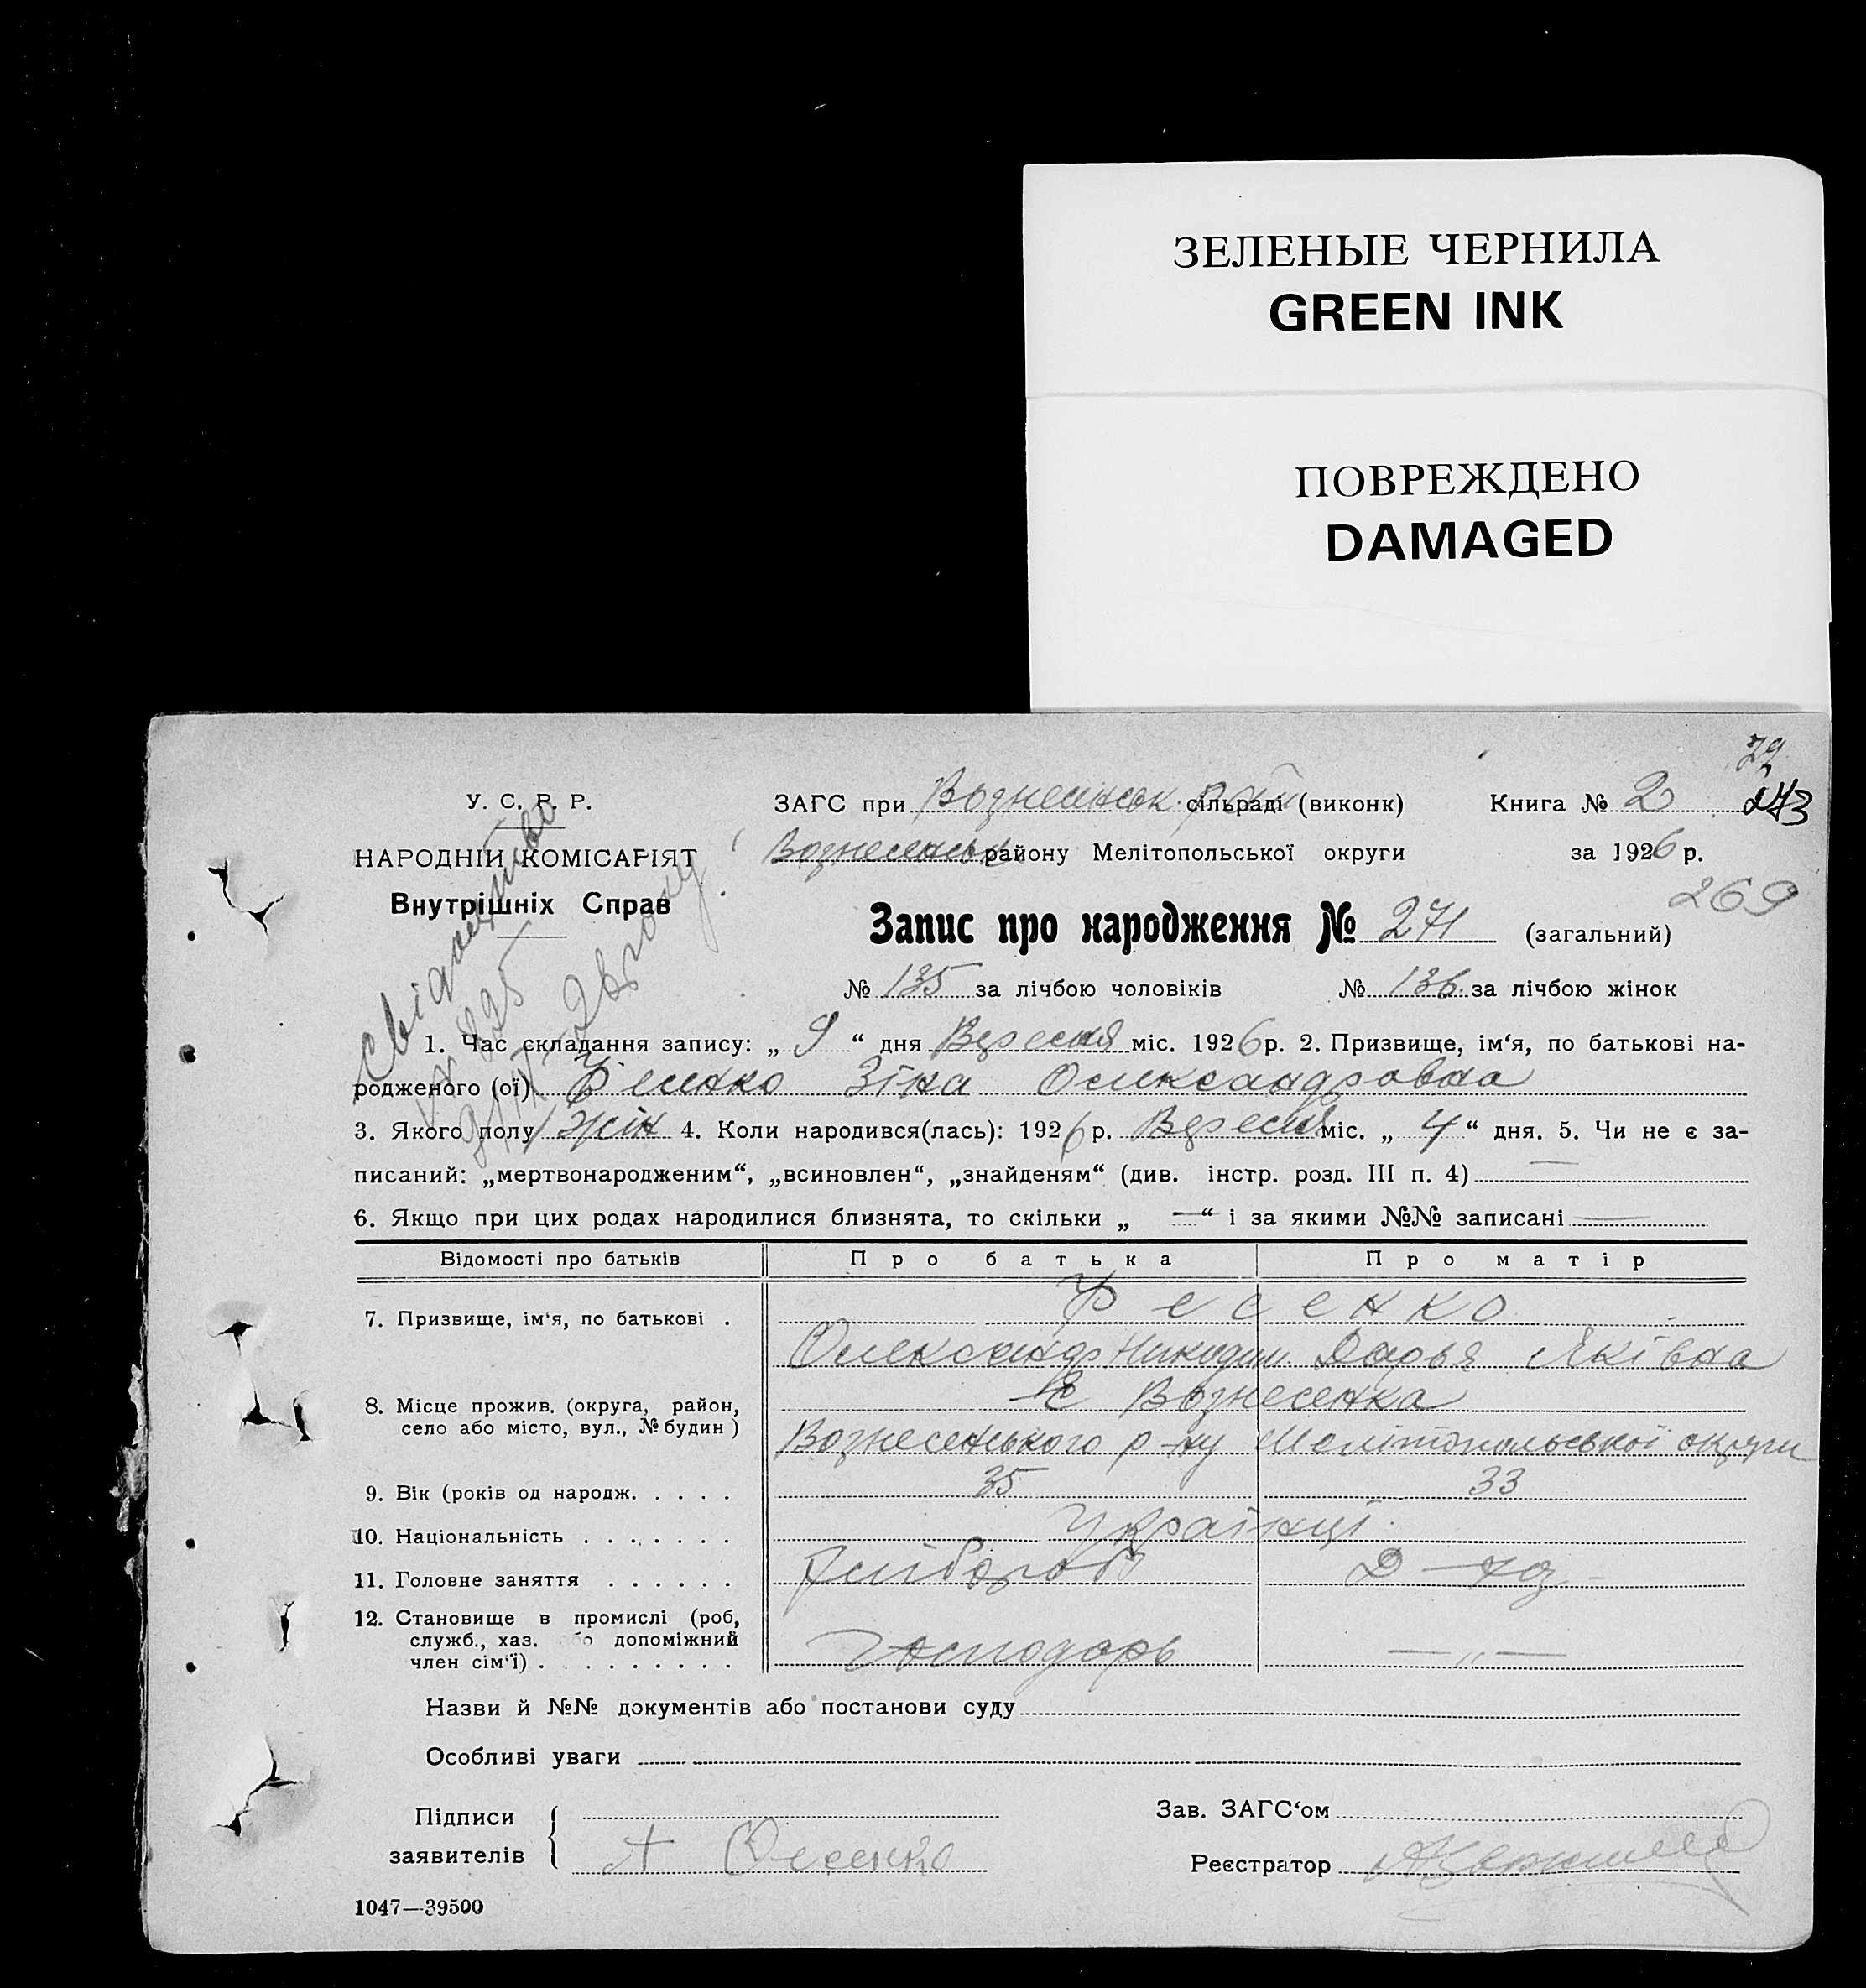 ЗЕЛЕНЫЕ ЧЕРНИЛА
GREEN INK
ПОВРЕЖДЕНО
DAMAGED
У. С. Р. Р.
НАРОДНІЙ КОМІСАРІЯТ
Внутрішніх Справ
ЗАГС при Вознесенськ сільраді (виконк)
Книга № 2
29
273
Вознесенськ району Мелітопольської округи
за 1926 р.
269
Запис про народження № 271 (загальний)
№ 135 за лічбою чоловіків № 136 за лічбою жінок
1. Час складання запису: „ 9 “ дня Вересня міс. 1926 р. 2. Призвище, ім‘я, по батькові на-
родженого (ої) Фесенко Зіна Олександровна
3. Якого полу жін 4. Коли народився(лась): 1926 р. Вересня міс. „ 4 “ дня. 5. Чи не є за-
писаний: „мертвонародженим“, „всиновлен“, „знайденям“ (див. інстр. розд. III п. 4) —
6. Якщо при цих родах народилися близнята, то скільки „ — “ і за якими №№ записані —
Свідоцтво
№ 825
Відомості про батьків Про батька Про матір
7. Призвище, ім‘я, по батькові . Фесенко
Олександр Никодим Дарья Яківна
8. Місце прожив. (округа, район,
село або місто, вул., № будин )
с Вознесенка
Вознесенського р-ну Мелітопольської округи
9. Вік (років од народж. . . . . 35 33
10. Національність . . . . . . . Українці
11. Головне заняття . . . . . . Хлібороб Д-
12. Становище в промислі (роб,
служб., хаз. або допоміжний
член сім‘ї) . . . . . . . . . Господарь — „ —
Назви й №№ документів або постанови суду
Особливі уваги
Підписи
заявителів
А Фесенко
Зав. ЗАГС‘ом
Реєстратор
1047—39500